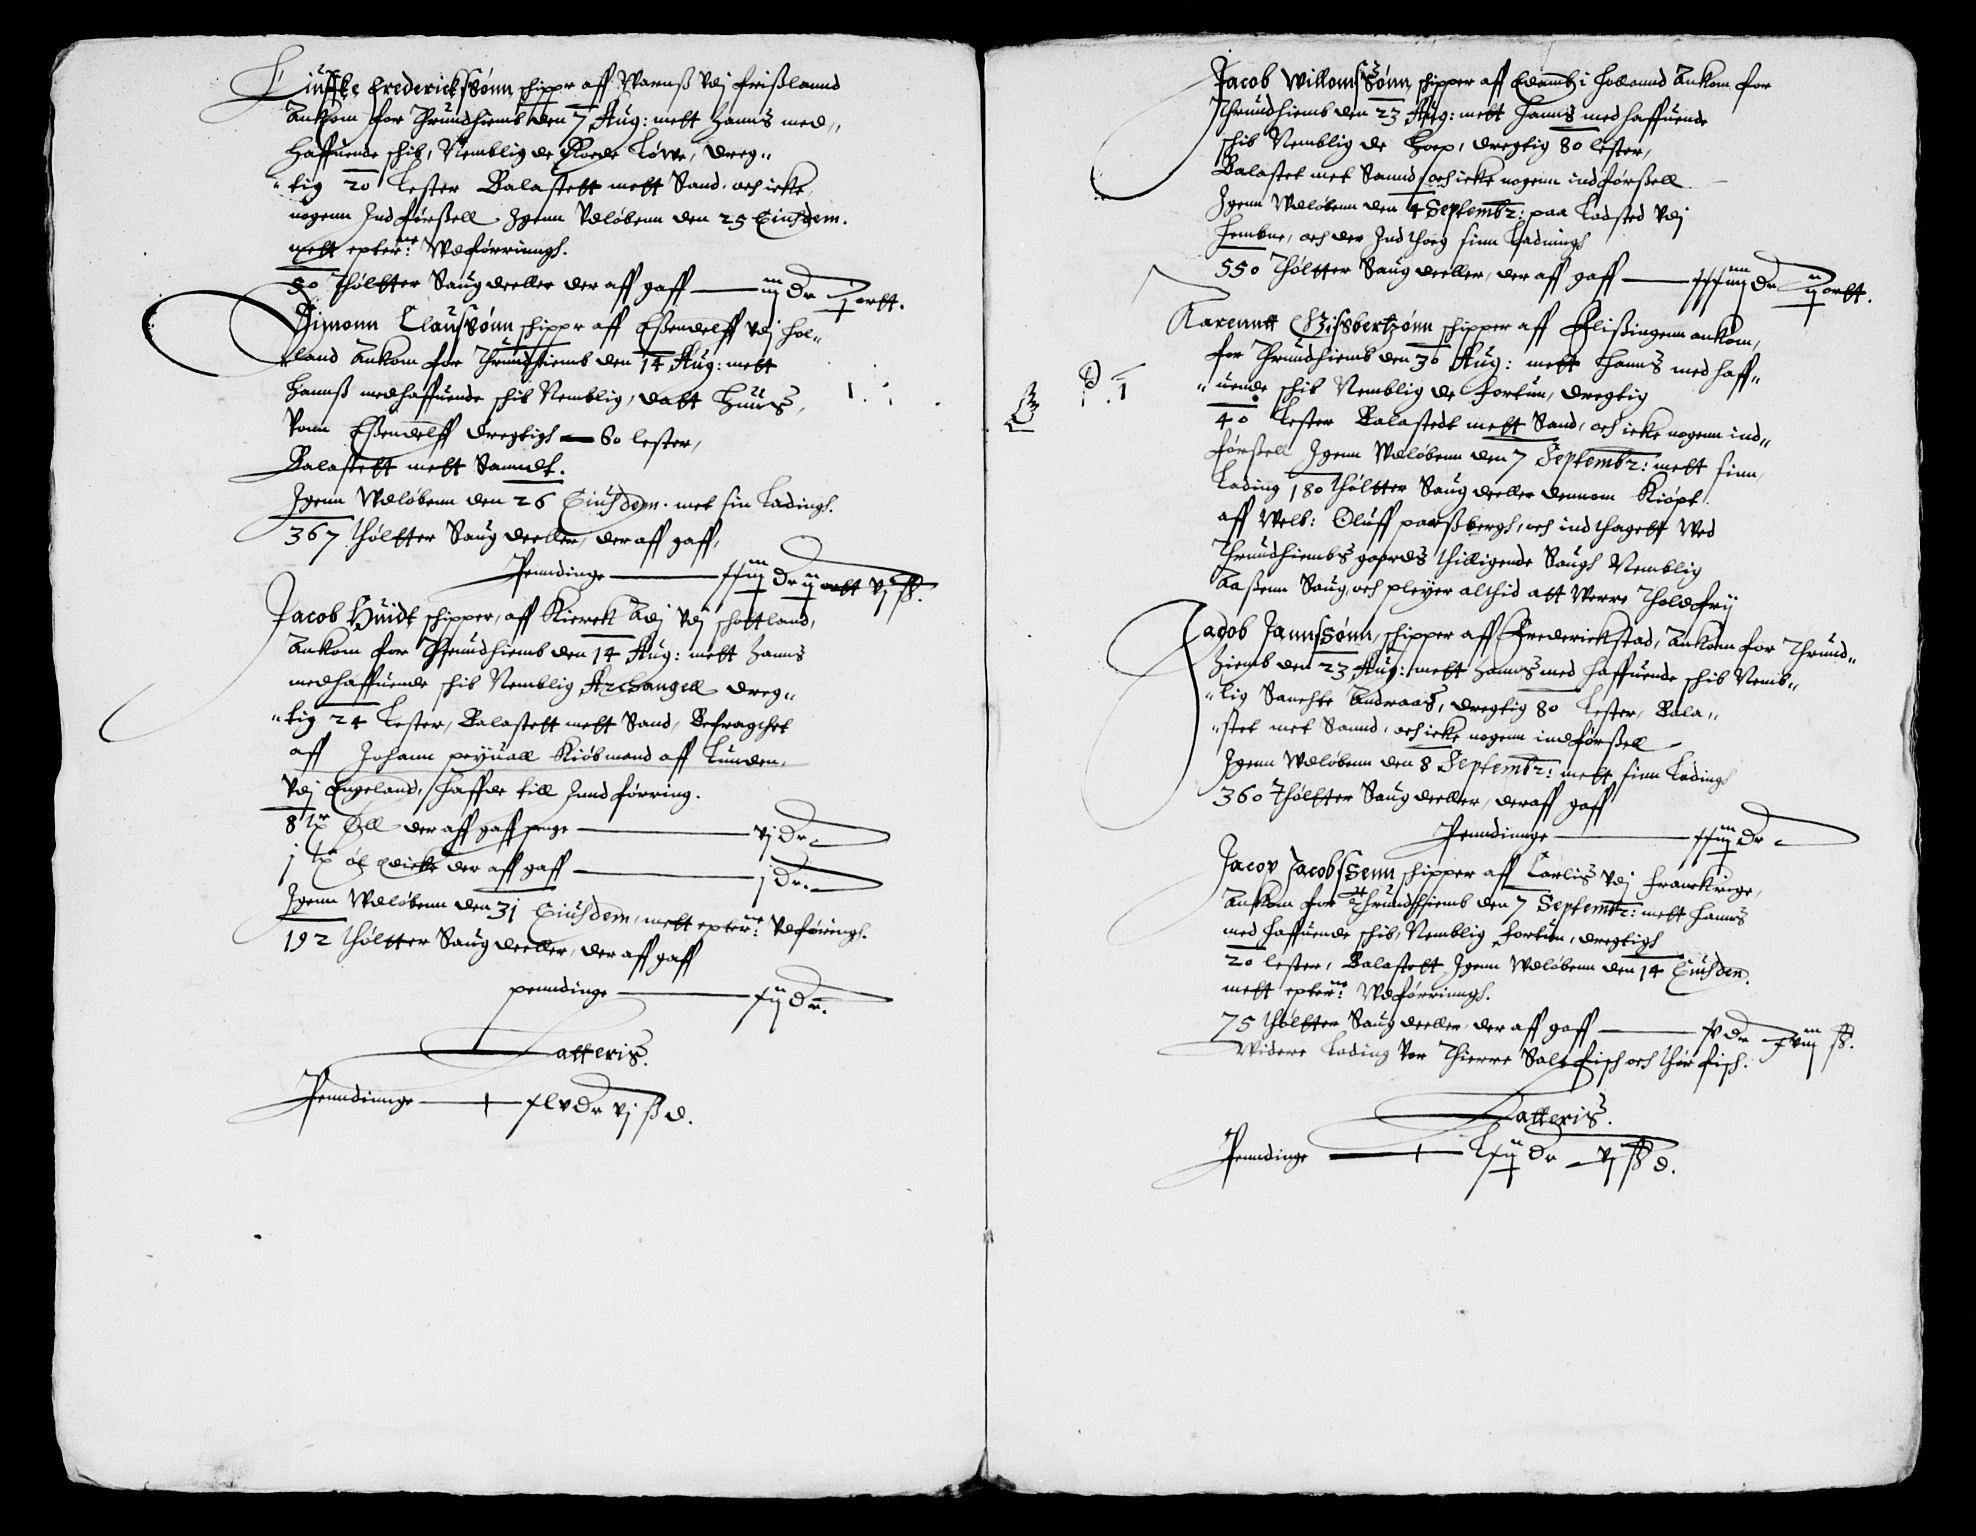 Frederickssønn schipper aff Warnß vdj Frißlannd
Ankom for Thrundhiemb den 7 Aug: mett Hanns med„
haffuende schib, Nemblig de Roede Løwe, dreg„
„tig 20 Lester Balastett mett Sand, och icke
nogenn Indførßell Igenn Vdløbenn den 25 Eiusdem.
mett epter:ne Wdførrinngh.
50 thøltter Saugdeeller der aff gaff — iiij Dr j ortt.
Simonn Claussønn schipper aff Eßendelff vdj Hol„
land Ankom for Thrundhiemb den 14 Aug: mett
Hannß medhaffuende schib Nemblig, datt Huus,
vonn Eßendelff dregtigh — 60 lester,
Balastett mett Sanndt.
Igenn Wdløbenn den 26 Eiusdem. met sin Ladingh.
367 thøltter Saugdeeller, der aff gaff,
Penndinge — xxiiij Dr ij ortt vj ß.
Jacob Huidt schipper, aff Kierck Adj vdj schottland,
Ankom for Thrundhiemb den 14 Aug: mett Hanns
medhaffuende schib Nemblig Archangell dreg„
„tig 24 Lester, Balastett mett Sand, Befragthet
aff Johann peyuall Kiøbmand aff Lunden,
vdj Engeland, haffde till Inndførring.
8 tr Øll der aff gaff penge — vj Dr
j tr øl Edicke der aff gaff — j Dr.
Igenn Wdløbenn den 31 Eiusdem, mett epter:ne Vdføringh.
192 thøltter Saugdeeller, der aff gaff
penndinge — xij Dr.
Latteris.
Penndinnge — xlv Dr vj ß d.
Jacob Willomssønn, schipper aff Edamb i Holannd Ankom for
Thrundhiemb den 23 Aug: mett Hanns medhaffuende
schib Nemblig de Hoep, dregtig 80 lester,
Balastet met Sannd, och icke nogenn indførßell
Igenn Wdløbenn den 4 Septembr: paa Ladsted vdj
Hembne, och der Indthoeg sinn Ladningh
550 Thøltter Saugdeeller, der aff gaff — xxxiiij Dr ij ortt.
Karenntt Gißbertzønn schipper aff Flißingenn ankom,
for Thrundhiemb den 30 Aug: mett Hanns medhaff„
„uende schib Nemblig de Fortun, dregtig
40 Lester Balastedt mett Sand, och icke nogenn ind„
førßell Igenn Wdløbenn den 7 Septembr: mett sinn
Lading 180 thøltter Saugdeeller dennom Kiøpt
aff Welb: Oluff parßbergh, och indthagett Wed
Thrundhiembs gaards thilligende Saugh Nemblig
Aaßenn Saug, och pleyer althid att Werre Tholdfrij
Jacob Jannssønn, schipper aff Frederickstad, Ankom for Thrund„
hiemb den 23 Aug: mett Hanns medhaffuende schib Nemb„
„lig Sanchte Andreas, dregtig 80 Lester, Bala„
„stet met Sannd, och icke nogenn indførßell
Igenn Wdløbenn den 8 Septembr: mett sinn Ladingh
360 Thøltter Saugdeeller, deraff gaff
Penndinnge — xxiij Dr
Jacob Jacobssenn schipper aff Carlis vdj Franckrige,
Ankom for Thrundhiemb den 7 Septembr: mett Hanns
medhaffuende schib, Nemblig Fortun, dregtigh
20 lester, Balastett Igenn Wdløbenn den 14 Eiusdem.
mett epter:ne Wdførrinngh.
75 thøltter Saugdeeller, der aff gaff — iv Dr xviij ß.
Widere Lading Vor Thierre Saltfisch och thørfisch.
Latteris.
Penndinge — Lxij Dr vj ß d.